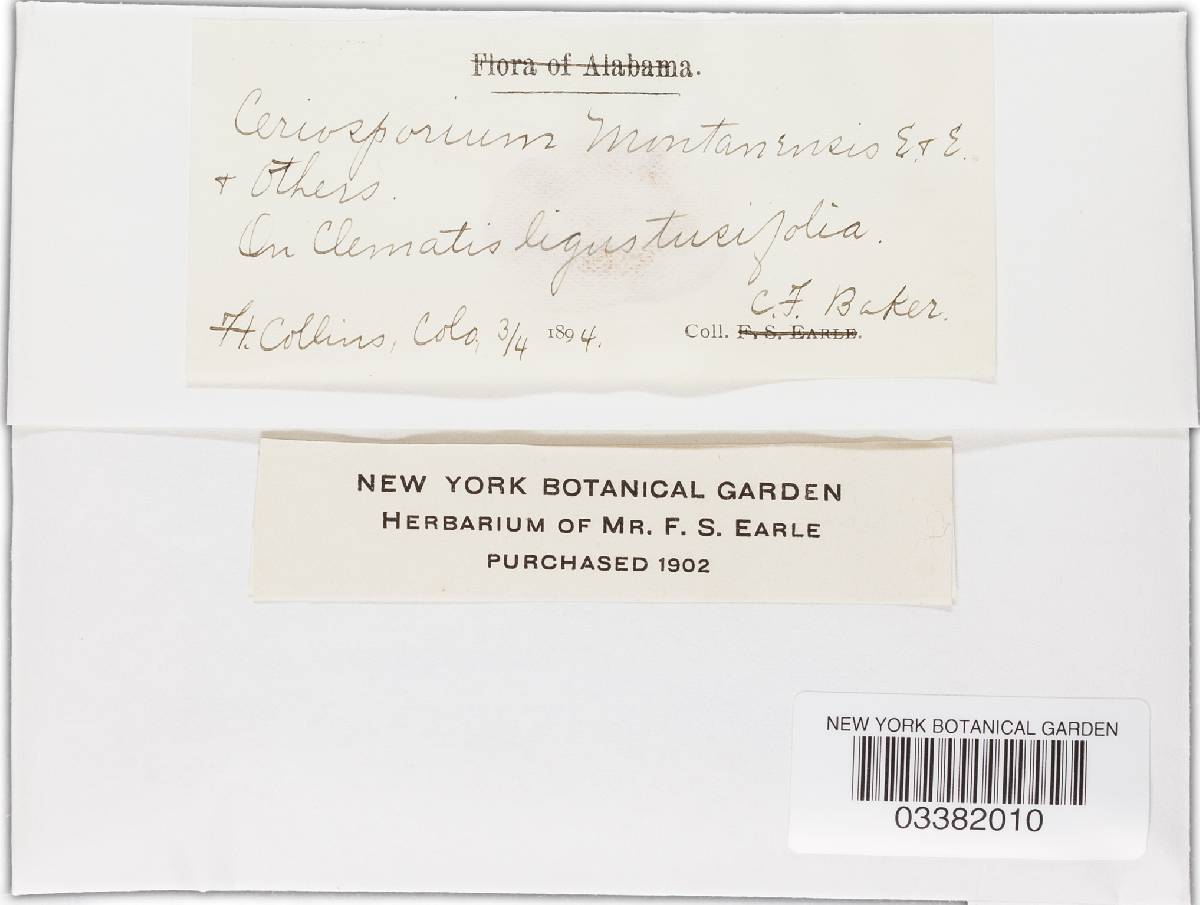 Flora of Alabama.
Ceriosporium Montanensis E. & E.
& Others.
On Clematis ligusticifolia.
C.F. Baker.
Ft. Collins, Colo, 3/4 1894. Coll. F. S. EARLE.
NEW YORK BOTANICAL GARDEN
HERBARIUM OF MR. F. S. EARLE
PURCHASED 1902
NEW YORK BOTANICAL GARDEN
03382010